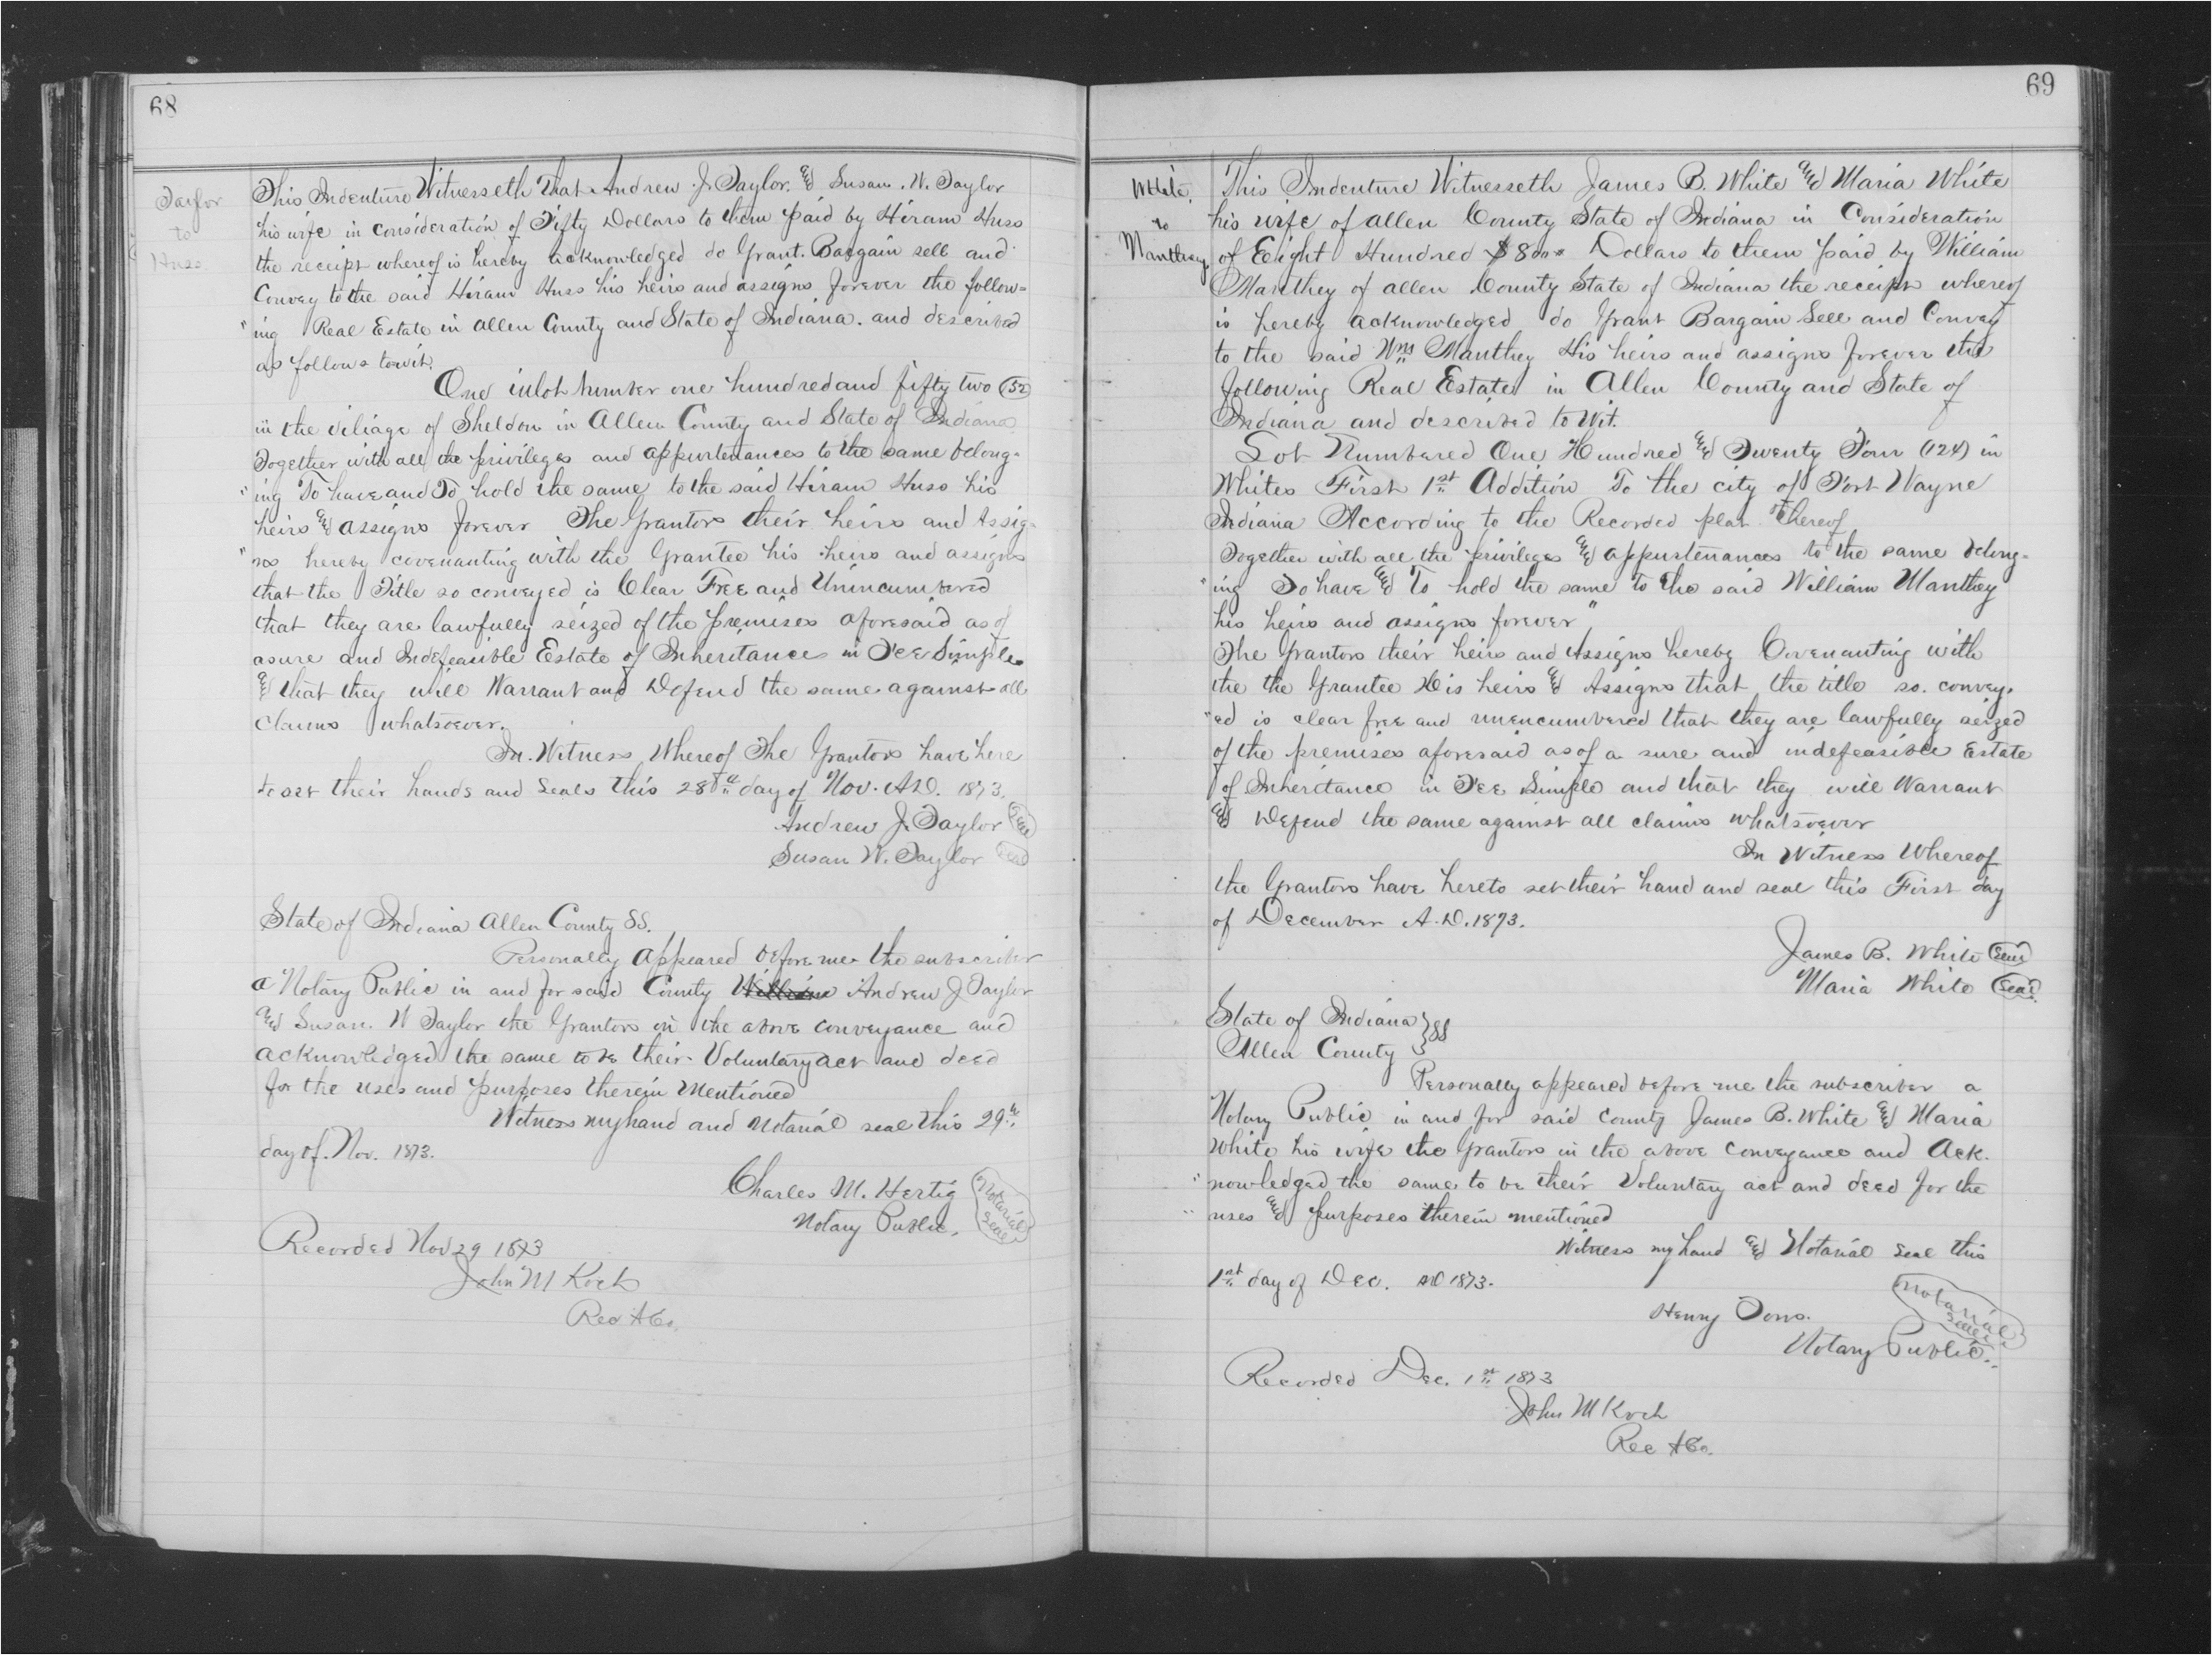 68
Taylor
to
Huss
This Indenture Witnesseth That Andrew J. Taylor. & Susan. W. Taylor
his wife in consideration of Fifty Dollars to them paid by Hiram Huss
the receipt whereof is hereby acknowledged do Grant. Bargain sell and
Convey to the said Hiram Huss his heirs and assigns forever the follow=
"ing Real Estate in Allen County and State of Indiana. and described
as follows towit.
One inlot number one hundred and fifty two (152)
in the village of Sheldon in Allen County and State of Indiana
Together with all the privileges and appurtenances to the same belong-
"ing To have and To hold the same to the said Hiram Huss his
heirs & assigns forever The Grantors their heirs and Assig-
"ns hereby covenanting with the Grantee his heirs and assigns
that the Title so conveyed is Clear Free and Unincumbered
that they are lawfully seized of the premises aforesaid as of
a sure and Indefeasible Estate of Inheritance in Fee Simple
& that they will Warrant and Defend the same against all
claims whatsoever.
In Witness Whereof The Grantors have here
to set their hands and seals this 28th day of Nov. A.D. 1873.
Andrew J. Taylor Seal
Susan W. Taylor Seal
State of Indiana Allen County SS.
Personally Appeared before me the subscriber
a Notary Public in and for said County William Andrew J Taylor
& Susan. W Taylor the Grantors in the above conveyance and
acknowledged the same to be their Voluntary act and deed
for the uses and purposes therein Mentioned
Witness my hand and Notarial seal this 29th
day of. Nov. 1873.
Charles M. Hertig Notarial
Notary Public. Seal
Recorded Nov 29 1873
John M Koch
Rec A Co.
69
White.
to
Manthey
This Indenture Witnesseth James B. White & Maria White
his wife of Allen County State of Indiana in Consideration
of Eight Hundred $800 Dollars to them paid by William
Manthey of Allen County State of Indiana the receipt whereof
is hereby acknowledged do Grant Bargain Sell and Convey
to the said Wm Manthey His heirs and assigns forever the
following Real Estate in Allen County and State of
Indiana and described to Wit.
Lot Numbered One Hundred & Twenty Four (124) in
Whites First 1st Addition To the city of Fort Wayne
Indiana According to the Recorded plat thereof
Together with all the privileges & appurtenances to the same belong-
"ing To have & To hold the same to the said William Manthey
his heirs and assigns forever"
The Grantors their heirs and Assigns hereby Covenanting with
the the Grantee His heirs & Assigns that the title so. convey-
"ed is clear free and unencumbered that they are lawfully seized
of the premises aforesaid as of a sure and indefeasible Estate
of Inheritance in Fee Simple and that they will Warrant
& Defend the same against all claims whatsoever
In Witness Whereof
the Grantors have hereto set their hand and seal this First day
of December A.D. 1873.
James B. White Seal
Maria White Seal
State of Indiana } SS
Allen County
Personally appeared before me the subscriber a
Notary Public in and for said county James B. White & Maria
White his wife the Grantors in the above conveyance and Ack-
"nowledged the same to be their Voluntary act and deed for the
uses & purposes therein mentioned
Witness my hand & Notarial seal this
1st day of Dec. AD 1873.
Henry Notarial
Notary Public. Seal
Recorded Dec. 1st 1873
John M Koch
Rec A Co.